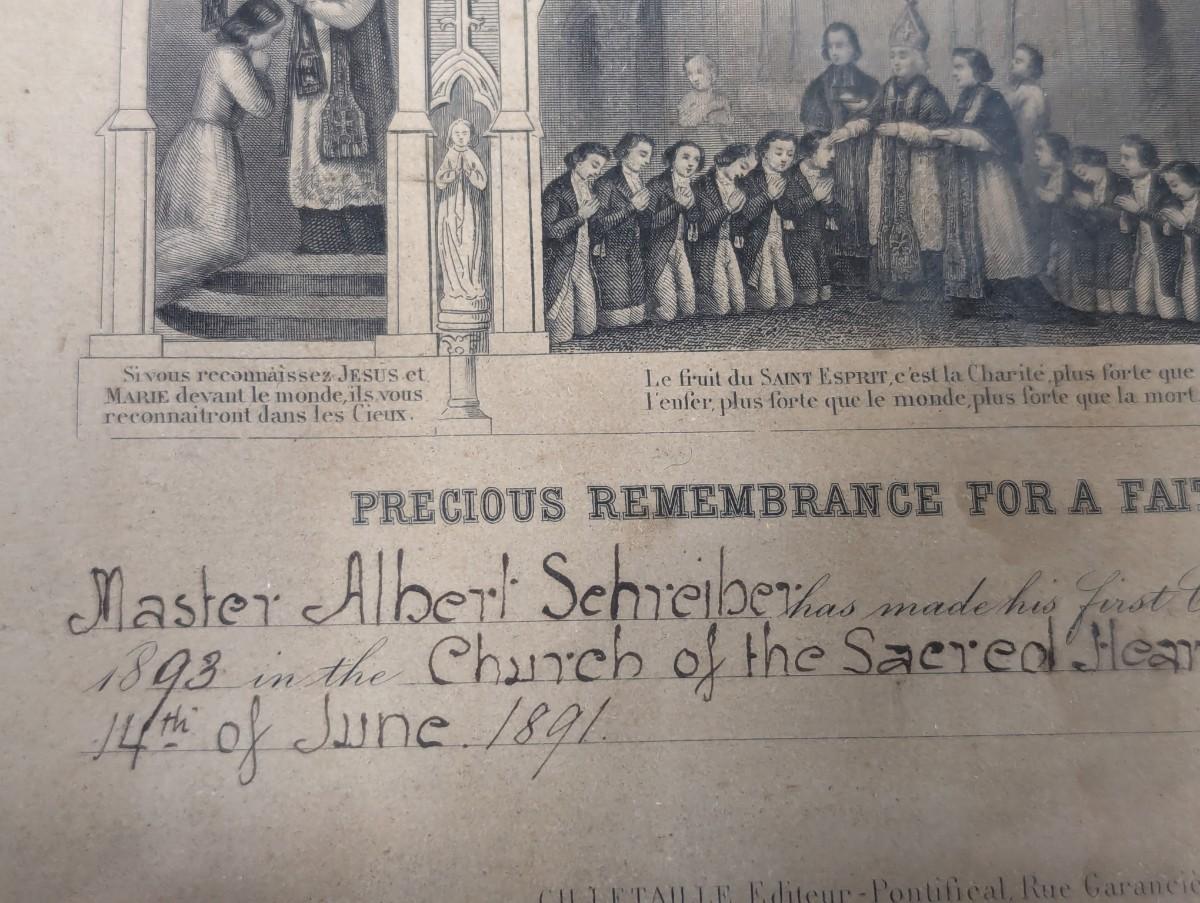 Si vous reconnaissez JESUS et
MARIE devant le monde, ils vous
reconnaitront dans les Cieux.
Le fruit du SAINT ESPRIT, c'est la Charité, plus forte que
l'enfer, plus forte que le monde, plus forte que la mort.
PRECIOUS REMEMBRANCE FOR A
Master Albert Schreiber has made his first
1893 in the Church of the Sacred
14th of June. 1891.
CH. LETAILLE Editeur-Pontifical, Rue